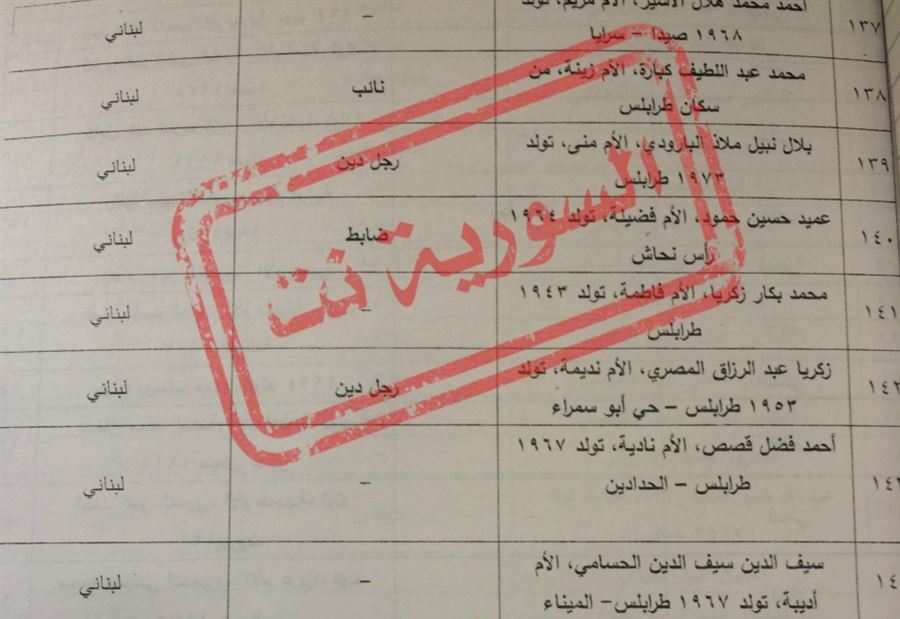 ١٣٧ أحمد محمد هلال الأسير، الأم مريم، تولد – لبناني
١٩٦٨ صيدا – سرايا
١٣٨ محمد عبد اللطيف كبارة، الأم زينة، من نائب لبناني
سكان طرابلس
١٣٩ بلال نبيل ملاذ البارودي، الأم منى، تولد رجل دين لبناني
١٩٧٣ طرابلس
١٤٠ عميد حسين حمود، الأم فضيلة، تولد ١٩٦٤ ضابط لبناني
رأس نحاش
١٤١ محمد بكار زكريا، الأم فاطمة، تولد ١٩٤٣ – لبناني
طرابلس
١٤٢ زكريا عبد الرزاق المصري، الأم نديمة، تولد رجل دين لبناني
١٩٥٣ طرابلس – حي أبو سمراء
أحمد فضل قصص، الأم نادية، تولد ١٩٦٧ – لبناني
طرابلس – الحدادين
سيف الدين سيف الدين الحسامي، الأم – لبناني
أديبة، تولد ١٩٦٧ طرابلس– الميناء
السورية نت